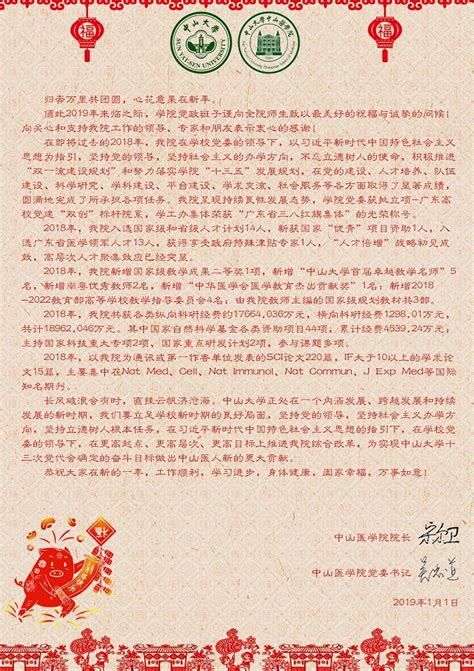 福
福
中山大学
SUN YAT-SEN UNIVERSITY
中山大学中山医学院
归帝万里共团圆，心花意果在新年。
值此2019年来临之际，学院党政班子谨向全院师生致以最美好的祝福与诚挚的问候！
向关心和支持我院工作的领导、专家和朋友表示衷心的感谢！
在即将过去的2018年，我院在学校党委的领导下，以习近平新时代中国特色社会主义
思想为指引，坚持党的领导，坚持社会主义的办学方向，不忘立德树人的使命，积极推进
“双一流建设规划”和努力落实学院“十三五”发展规划，在党的建设、人才培养、队伍
建设、科学研究、学科建设、平台建设、学术交流、社会服务等各方面取得了显著成绩，
圆满地完成了所承担各项任务。我院呈现持续良性发展态势，学院党委获批立项-广东高
校党建“双创”标杆院系，学工办集体荣获“广东省三八红旗集体”的光荣称号。
2018年，我院入选国家级和省级人才计划14人，新获国家“优青”项目资助1人，入
选广东省医学领军人才13人，获得享受政府特殊津贴专家1人，“人才倍增”战略初见成
效，高层次人才聚集效应已经突显。
2018年，我院新增国家级教学成果二等奖1项，新增“中山大学首届卓越教学名师”5
名，新增南粤优秀教师2名，新增“中华医学会医学教育杰出贡献奖”1名；新增2018
-2022教育部高等学校教学指导委员会4名；由我院教师主编的国家级规划教材共3部。
2018年，我院共获各类纵向科研经费约17664.036万元，横向科研经费1298.01万元，
共计18962.046万元。其中国家自然科学基金各类资助项目44项，累计经费4539.24万元，
主持国家科技重大专项2项、国家重点研发计划2项，参与课题多项。
2018年，以我院为通讯或第一作者单位发表的SCI论文220篇，IF大于10以上的学术论
文15篇，主要集中在Nat Med、Cell、Nat Immunol、Nat Commun、J Exp Med等国际
知名期刊。
长风破浪会有时，直挂云帆济沧海。中山大学正处在一个内涵发展、跨越发展和持续
发展的新时期，我们要立足学校新时期的良好局面，坚持党的领导，坚持社会主义办学方
向，坚持立德树人根本任务，在习近平新时代中国特色社会主义思想的指引下，在学校党
委的领导下，在更高起点、更高层次、更高目标上推进我院综合改革，为实现中山大学十
三次党代会确定的奋斗目标做出中山医人新的更大贡献。
恭祝大家在新的一年，工作顺利，学习进步，身体健康，阖家幸福，万事如意！
福
中山医学院院长
中山医学院党委书记
2019年1月1日